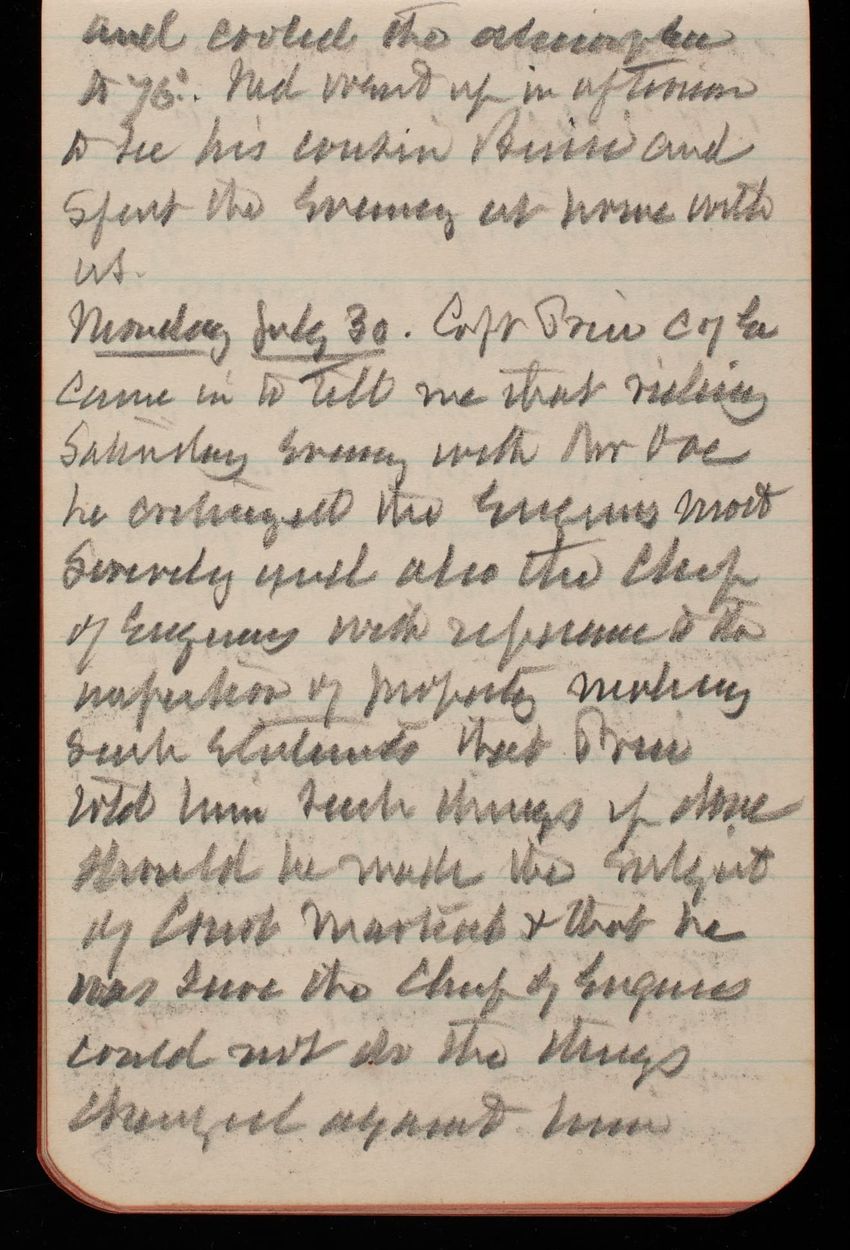 and cooled the atmosphere
to 76°. Ned went up in afternoon
to see his cousin and
spent the Evening at home with
us.
Monday July 30. Capt Price C of En
came in to tell me that riding
Saturday Evening with Mr
he criticized the Engineers most
severely and also the Chief
of Engineers with reference to the
inspection of property making
such statements that Price
told him such things if done
should be made the subject
of Court Martial & that he
was sure the Chief of Engineers
could not do the things
charged against him